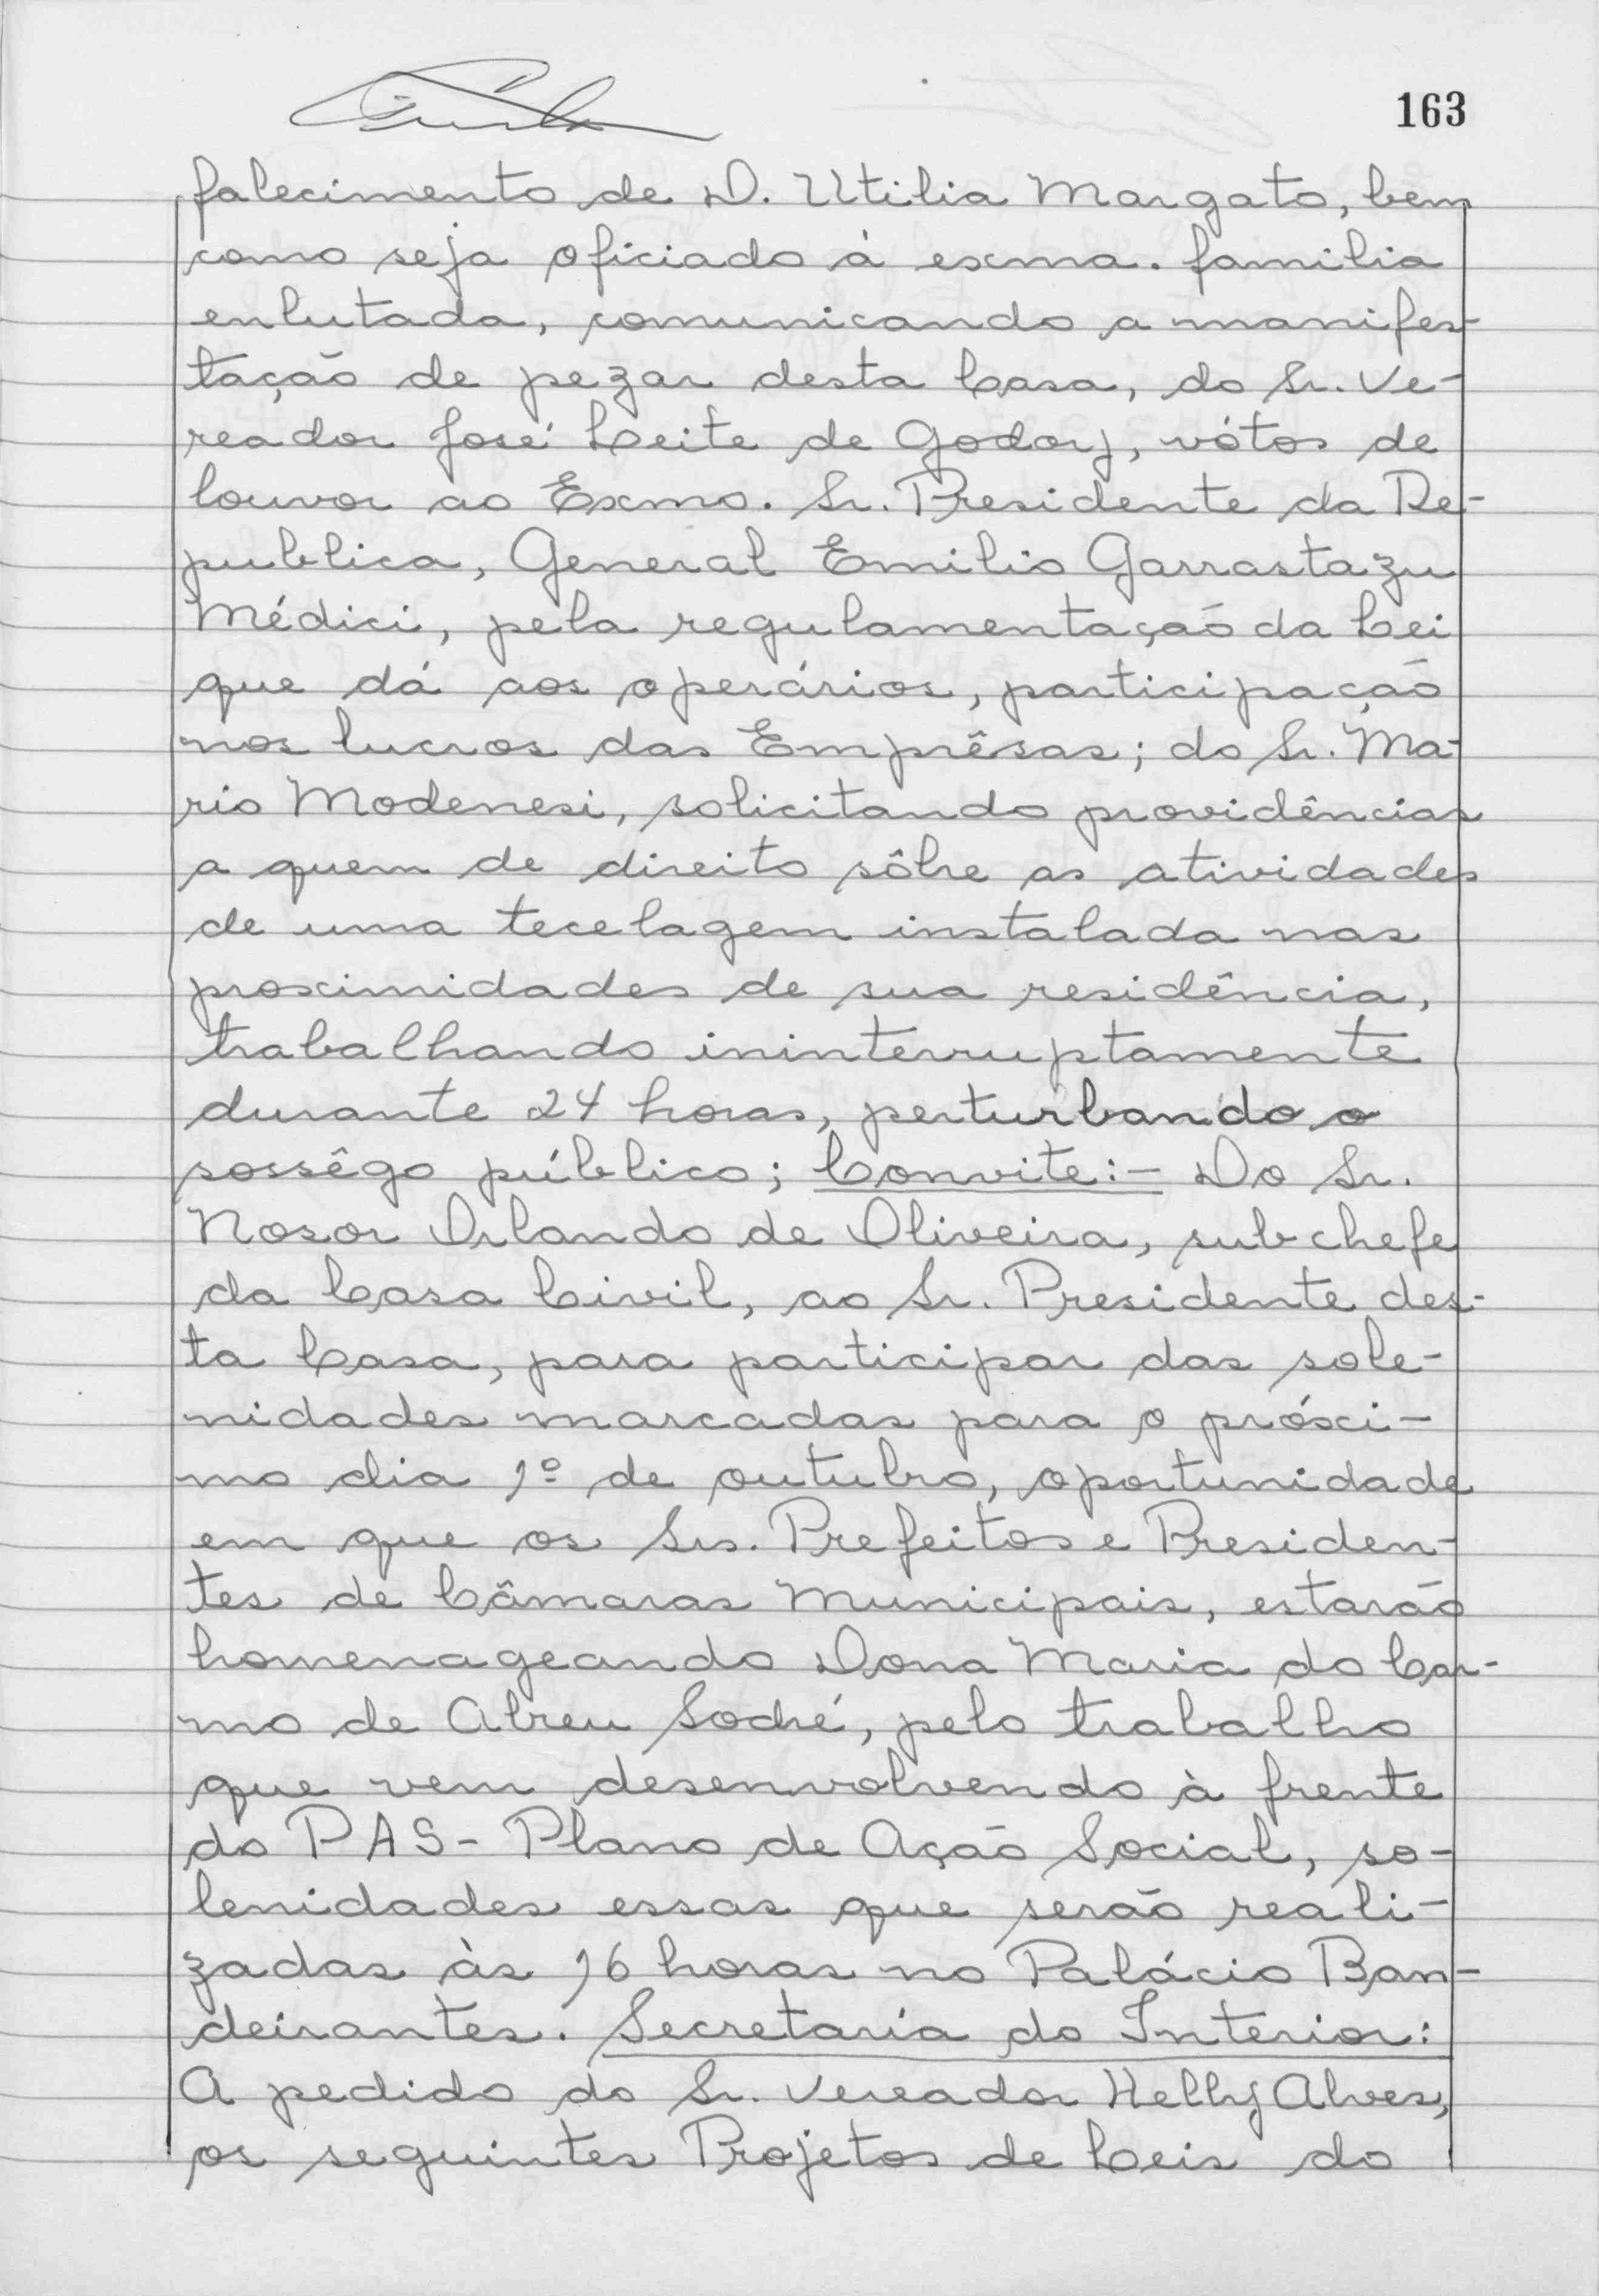 163
falecimento de D. Utilia Margato, bem
como seja oficiado à exma. familia
enlutada, comunicando a manifes-
tação de pezar desta Casa, do Sr. Ve-
reador José Leite de Godoy, vótos de
louvor ao Exmo. Sr. Presidente da Re-
publica, General Emilio Garrastazu
Médici, pela regulamentação da Lei
que dá aos operários, participação
nos lucros das Emprêsas; do Sr. Ma-
rio Modenesi, solicitando providências
a quem de direito sôbre as atividades
de uma tecelagem instalada nas
proximidades de sua residência,
trabalhando ininterruptamente
durante 24 horas, perturbando o
sossêgo público; Convite:- Do Sr.
Nosor Orlando de Oliveira, subchefe
da Casa Civil, ao Sr. Presidente des-
ta Casa, para participar das sole-
nidades marcadas para o próxi-
mo dia 1º de outubro, oportunidade
em que os Srs. Prefeitos e Presiden-
tes de Câmaras Municipais, estarão
homenageando Dona Maria do Car-
mo de Abreu Sodré, pelo trabalho
que vem desenvolvendo à frente
do PAS - Plano de Ação Social, so-
lenidades essas que serão reali-
zadas às 16 horas no Palácio Ban-
deirantes. Secretaria do Interior:
A pedido do Sr. Vereador Helly Alves,
os seguintes Projetos de Leis do